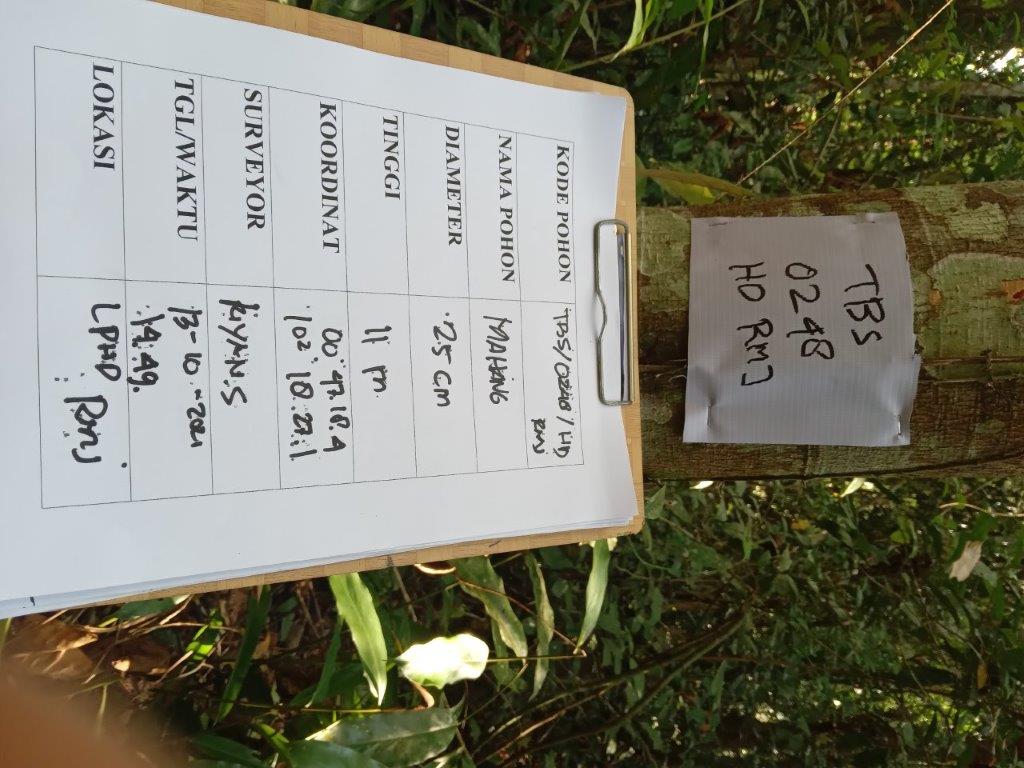 TBS
0248
HD RMJ
KODE POHON TBS/0248/HD
RMJ
NAMA POHON MAHANG
DIAMETER 25 cm
TINGGI 11 m
KOORDINAT 00° 47. 18. 4
102° 18. 27. 1
SURVEYOR RIYAN.S
TGL/WAKTU 13-10-2021
14.49.
LOKASI LPHD RMJ